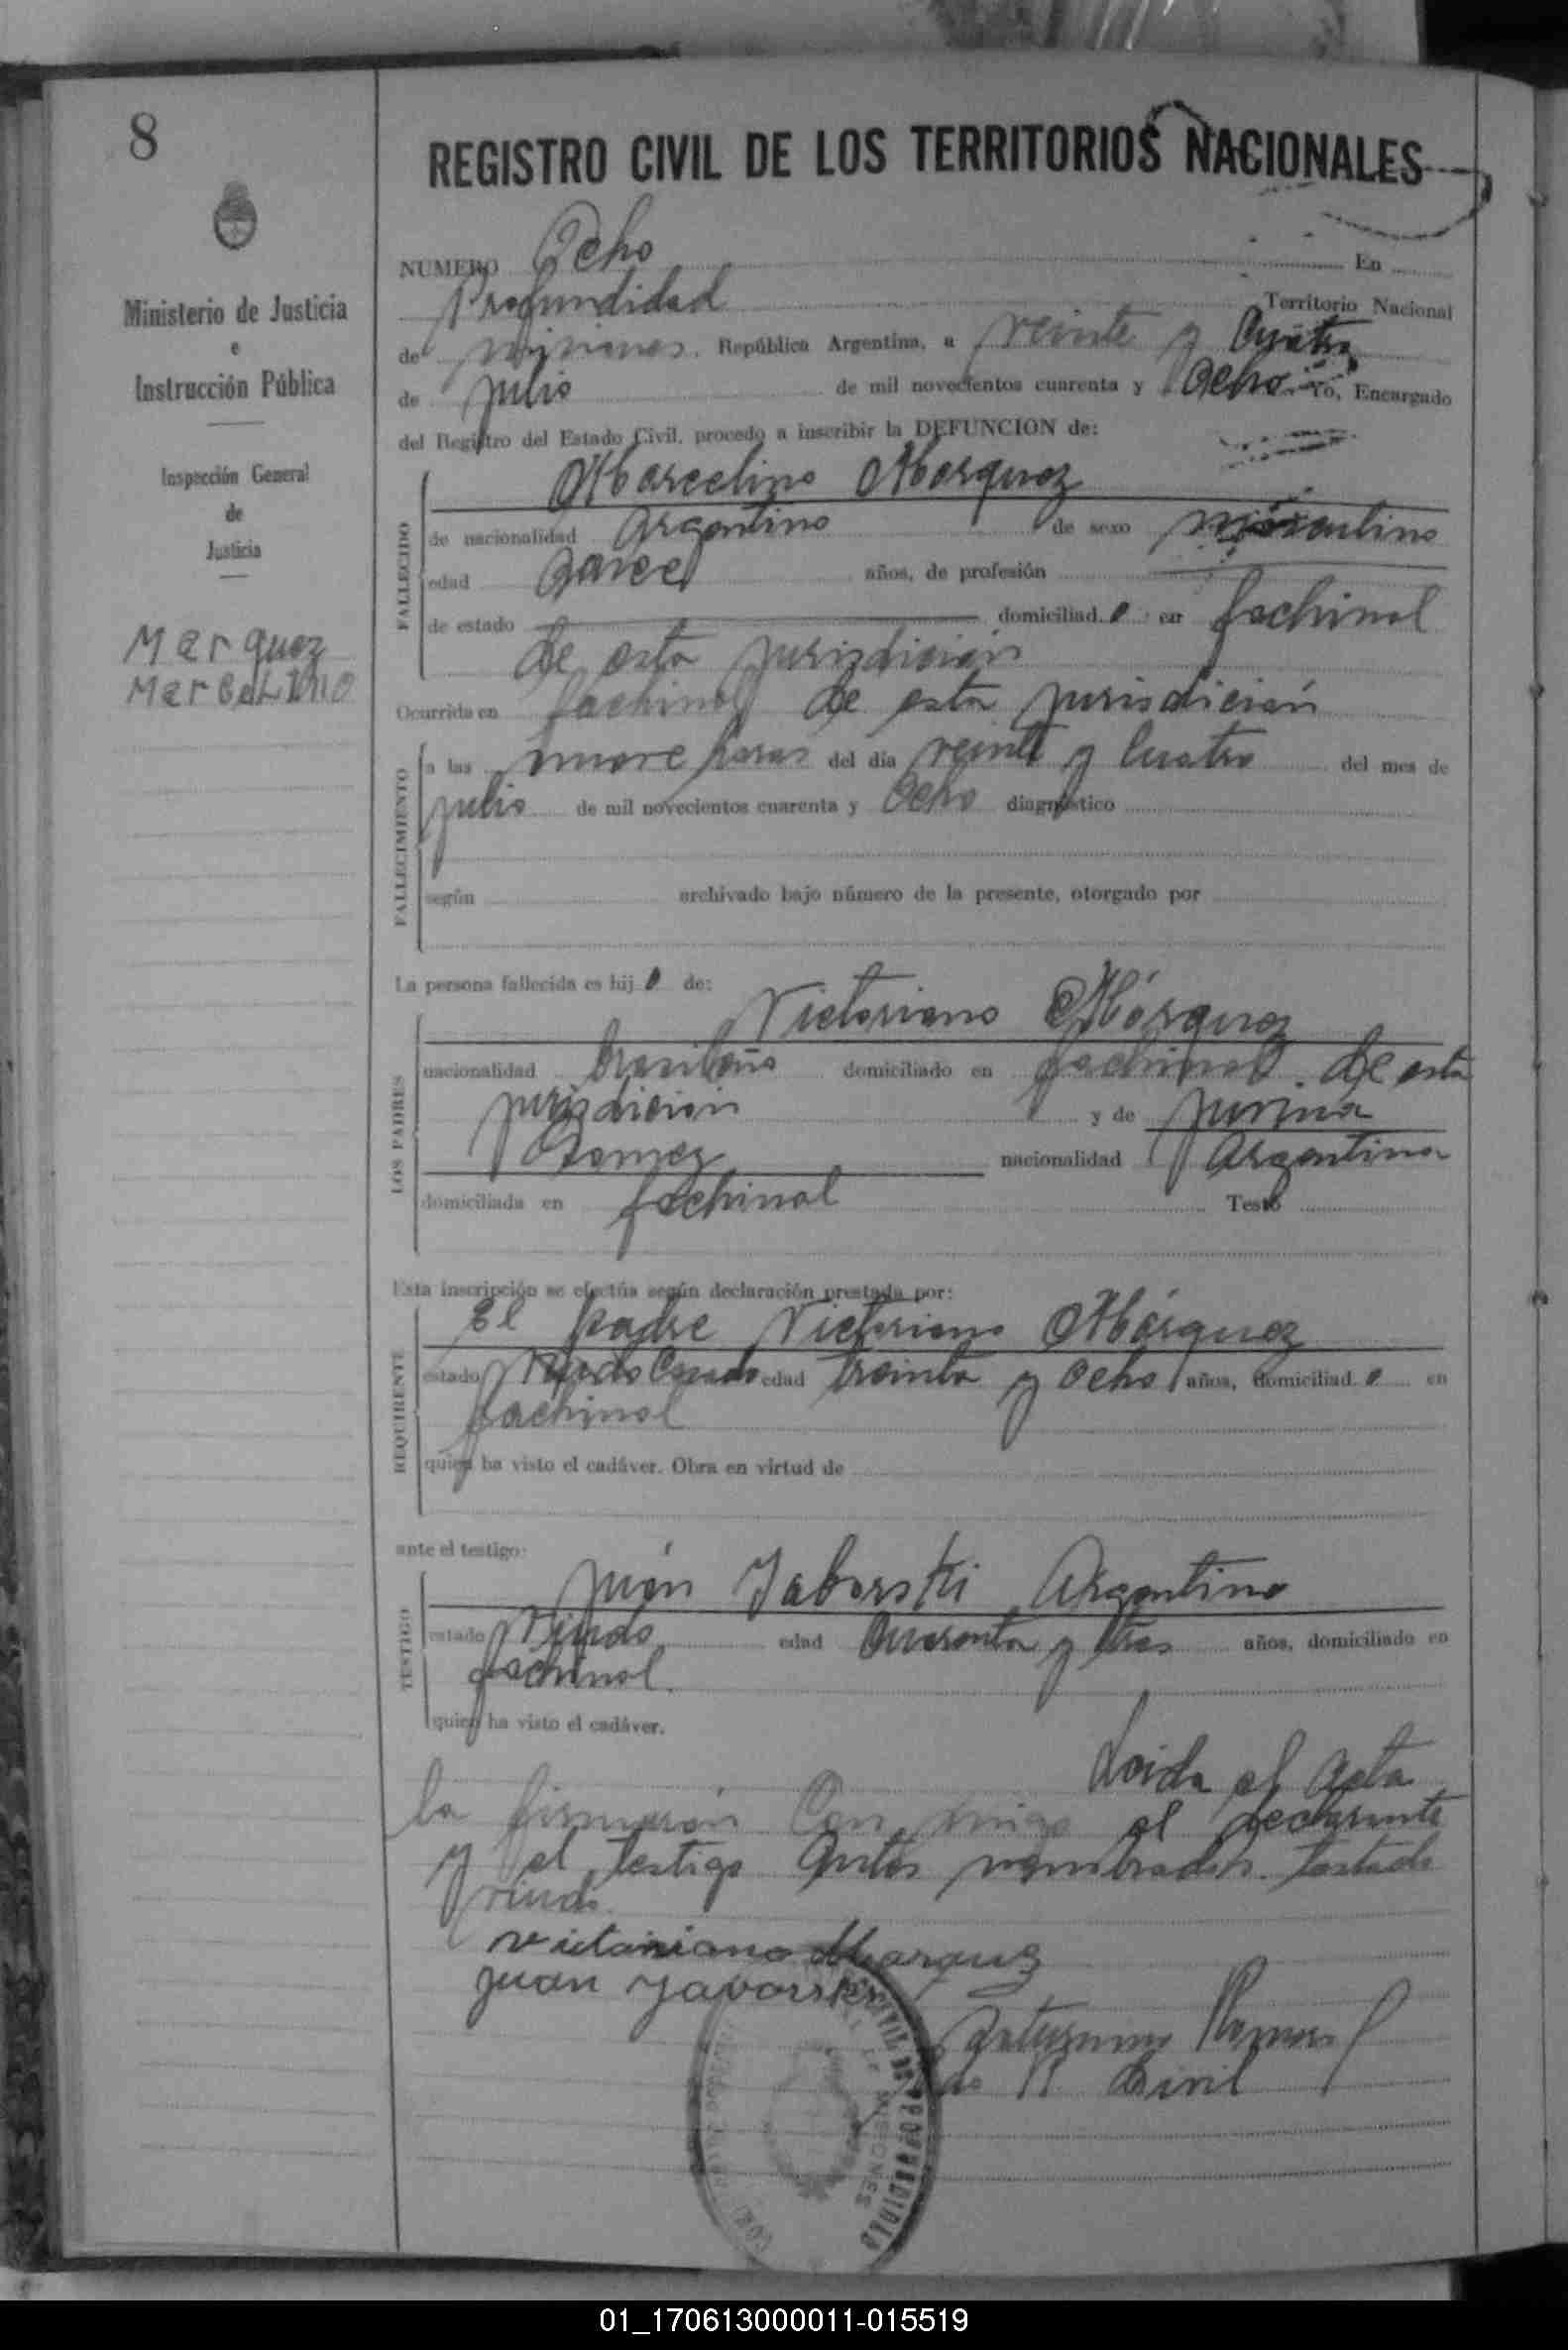 8
Ministerio de Justicia
e
Instrucción Pública
Inspección General
de
Justicia
Marquez
Marcelino
REGISTRO CIVIL DE LOS TERRITORIOS NACIONALES
NUMERO Ocho En
Profundidad Territorio Nacional
de misiones. República Argentina, a veinte y Cuatro
de julio de mil novecientos cuarenta y Ocho. Yo, Encargado
del Registro del Estado Civil, procedo a inscribir la DEFUNCION de:
FALLECIDO
Marcelino Marquez
de nacionalidad Argentino de sexo masculino
edad años, de profesión
de estado domiciliad o en fachinal
de esta jurisdición
Ocurrida en fachinal de esta jurisdición
FALLECIMIENTO
a las nueve horas del día veinte y Cuatro del mes de
julio de mil novecientos cuarenta y Ocho diagnóstico
según archivado bajo número de la presente, otorgado por
La persona fallecida es hij o de:
LOS PADRES
Victoriano Márquez
nacionalidad brasileño domiciliado en fachinal. de esta
jurisdición y de
Gomez nacionalidad Argentina
domiciliada en fachinal Testó
Esta inscripción se efectúa según declaración prestada por:
REQUIRENTE
El padre Victoriano Márquez
estado Viudo Casado edad treinta y ocho años, domiciliad o en
fachinal
quien ha visto el cadáver. Obra en virtud de
ante el testigo:
TESTIGO
juán Yaborski Argentino
estado Viudo edad Cuarenta y tres años, domiciliado en
fachinal.
quien ha visto el cadáver.
Leida el Acta
la firmarón Con migo el declarante
y el testigo Antes nombrados. testado
viudo.
victoriano Marquez
juan yavorski
Ramos
R. Civil
CIVIL DE PROFUNDIDAD
MISIONES
01_170613000011-015519